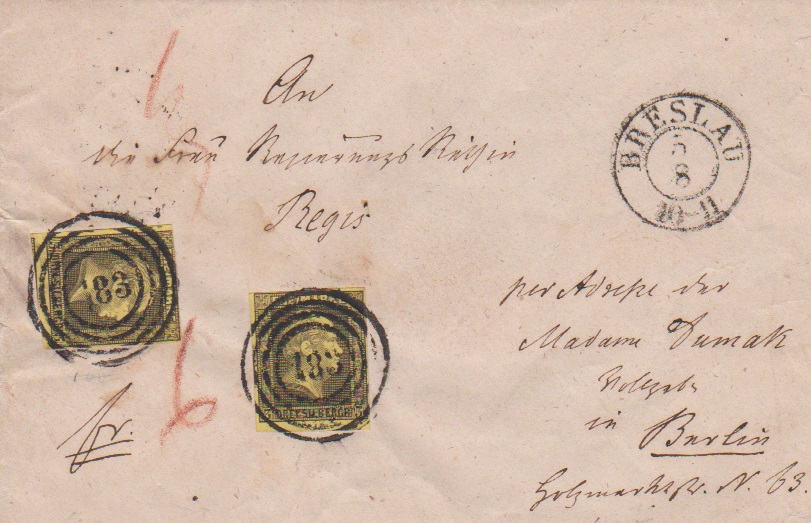 An
die Frau Regierungs Räthin
Regis
BRESLAU
5
8
10-11
183
183
SILBERGR.
per Adresse der
Madame Dumak
in Berlin
Holzmarktstr. N. 63.
fr.
6